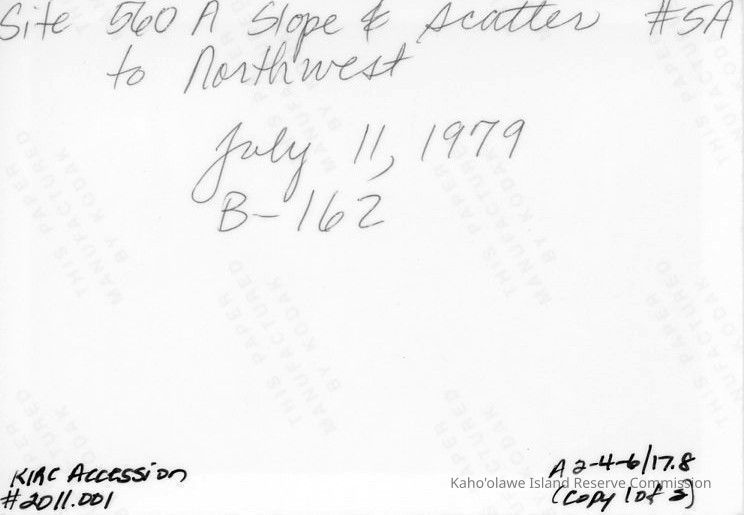 Site 560 A Slope & scatter #5A
to Northwest
July 11, 1979
B-162
THIS PAPER
MANUFACTURED
BY KODAK
KIRC Accession
#2011.001
A2-4-6/17.8
Kaho'olawe Island Reserve Commission
(Copy 1 of 3)